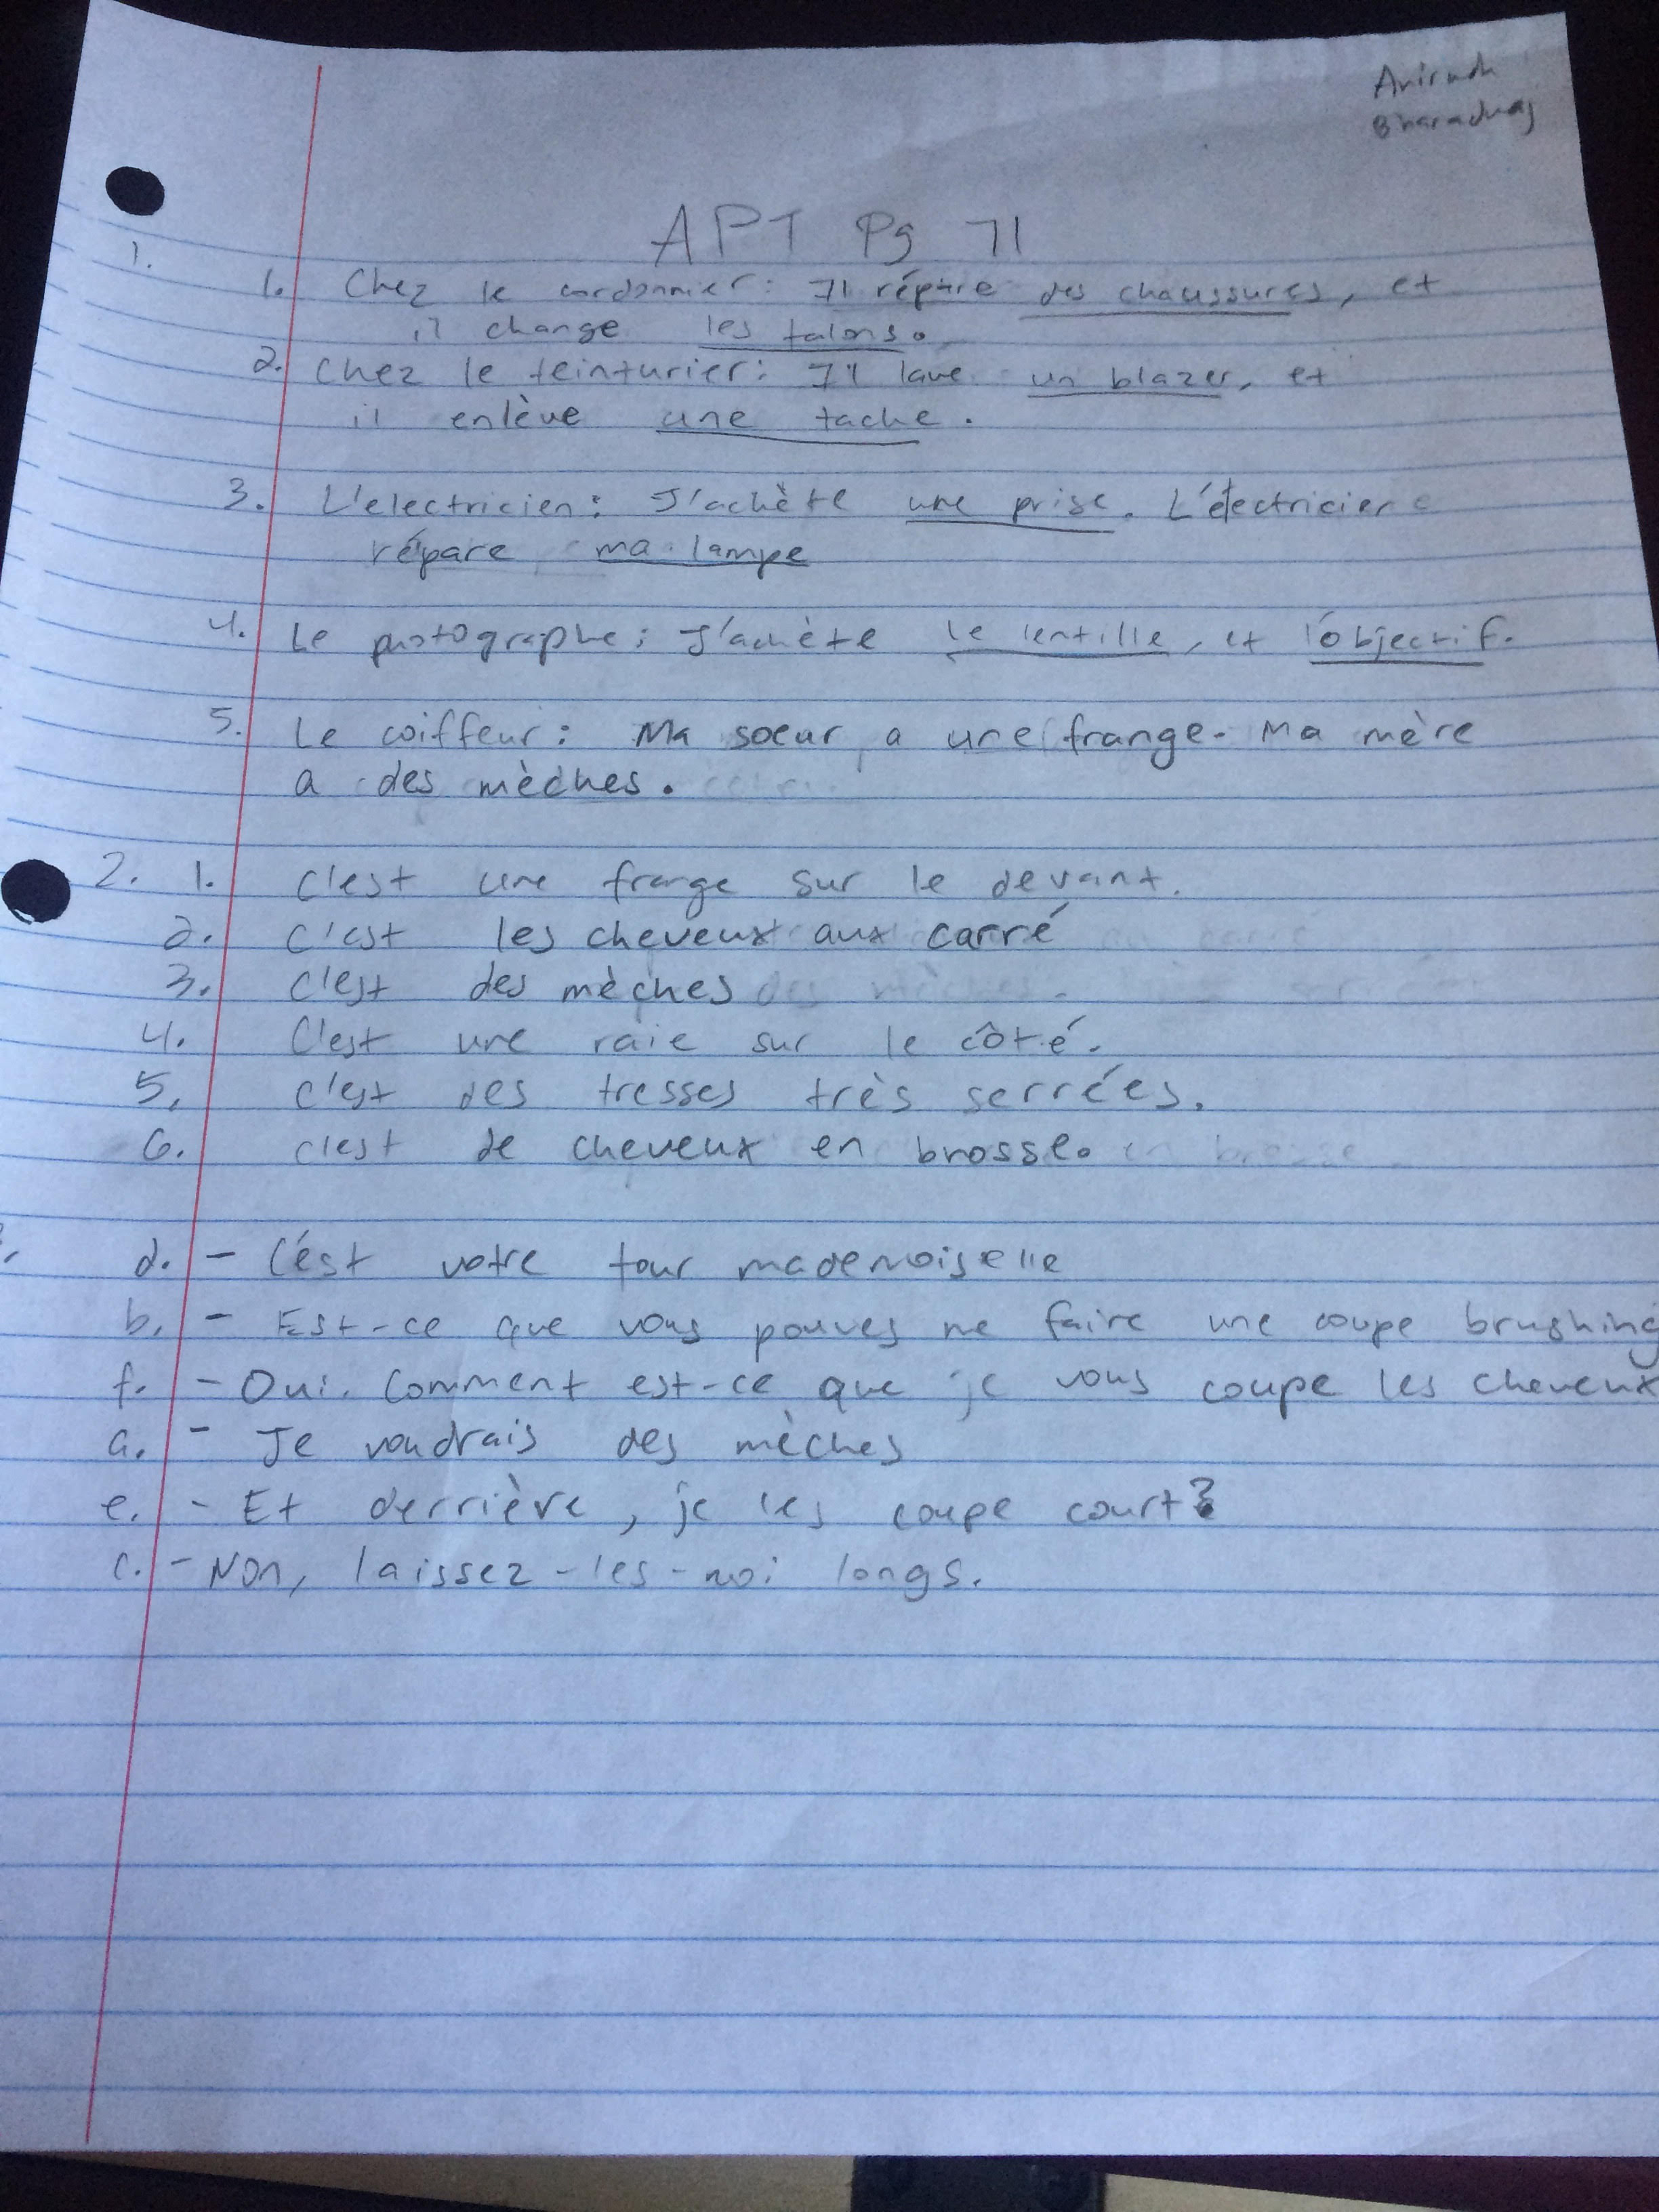 Anirudh
Bharadwaj
APT Pg 71
1.
1. Chez le cordonnier: Il répare des chaussures, et
il change les talons.
2. Chez le teinturier: Il lave un blazer, et
il enlève une tache.
3. L'electricien: J'achète une prise. L'électricien
répare ma lampe
4. Le photographe: J'achète le lentille, et l'objectif.
5. Le coiffeur: Ma soeur a une frange. Ma mère
a des mèches.
2. 1. C'est une frange sur le devant.
2. C'est les cheveux aux carré
3. C'est des mèches
4. C'est une raie sur le côté.
5. C'est des tresses très serrées.
6. C'est de cheveux en brosse.
d. - C'est votre tour mademoiselle
b. - Est-ce que vous pouves me faire une coupe brushing
f. - Oui. Comment est-ce que je vous coupe les cheveux
a. - Je voudrais des mèches
e. - Et derrière, je les coupe court?
c. - Non, laissez-les-moi longs.